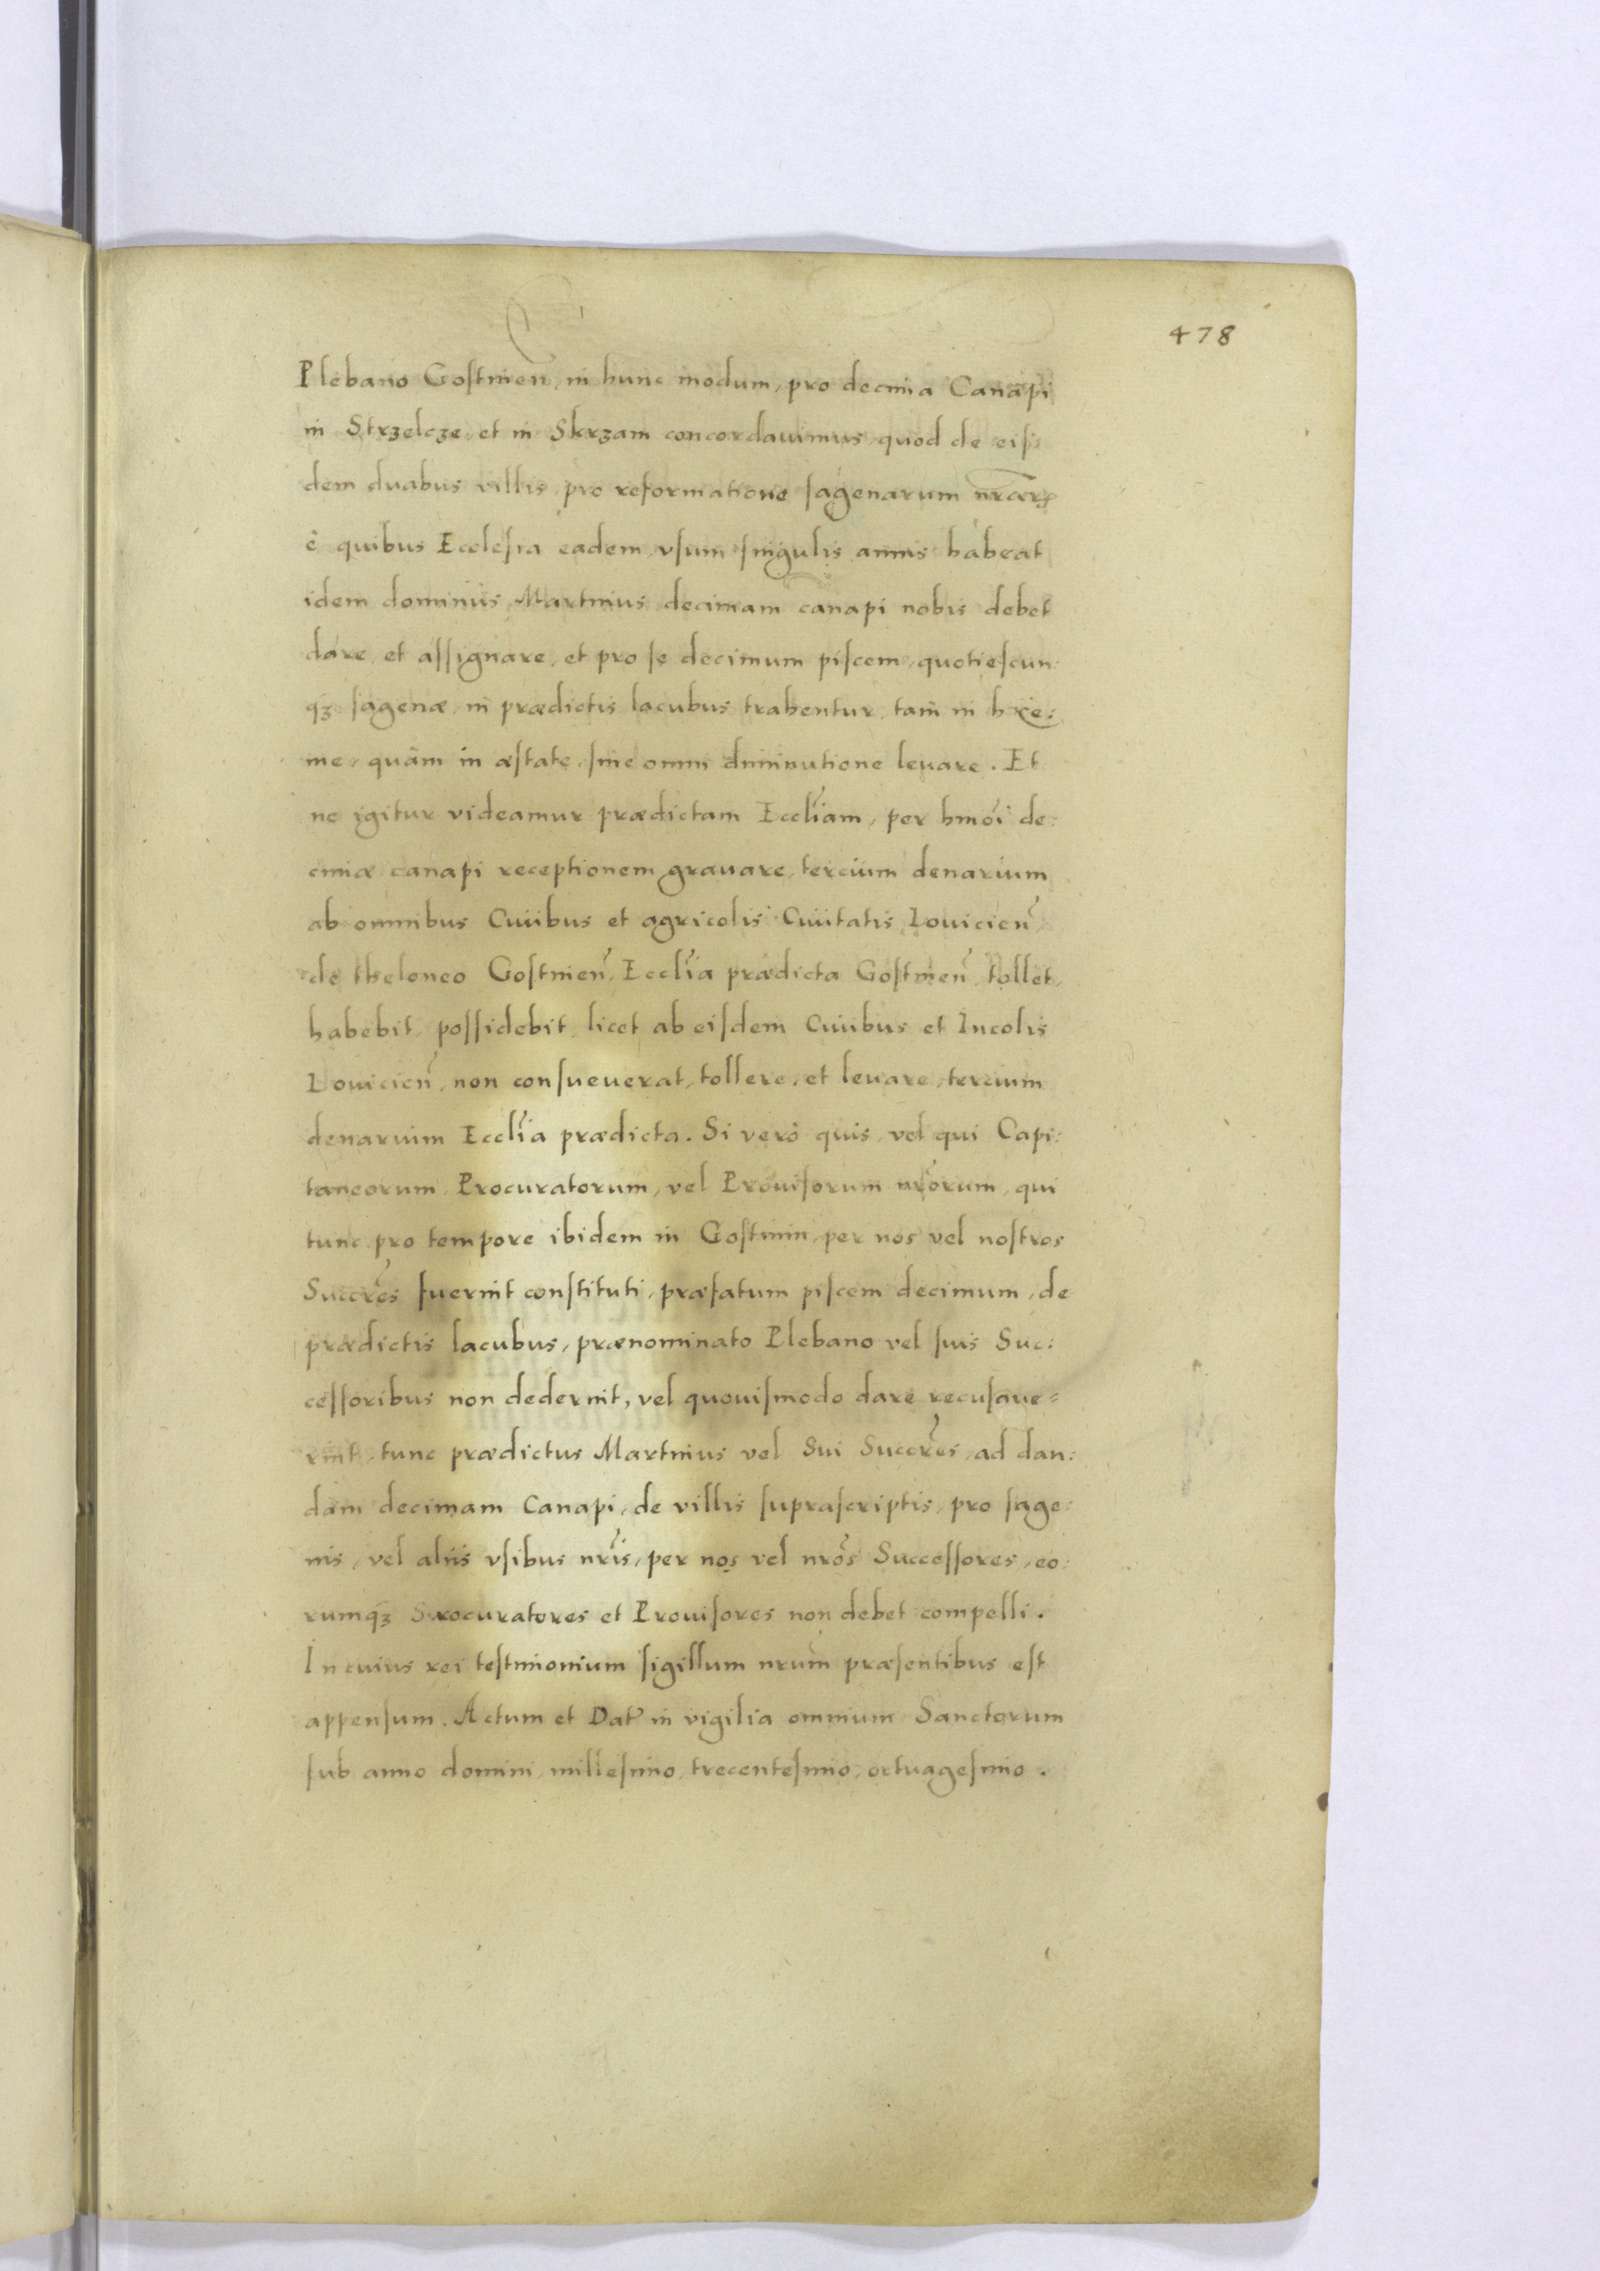 478
Plebano Gostinen̄, in hunc modum, pro decima Canapi
in Strzelcze, et in Skrzam concordauimus, quod de eiſ:
dem duabus villis, pro reformatione ſagenarum nrarꝝ
è quibus Eccleſia eadem, vſum ſingulis annis habeat
idem dominus Martinus decimam canapi nobis debet
dare, et aſſignare, et pro ſe decimum piſcem, quotieſcun:
qꝫ ſagenæ, in prædictis lacubus trahentur, tam in hye:
me, quàm in æſtate, ſine omni diminutione leuare. Et
ne igitur videamur prædictam Eccl̃iam, per hmo͂i de:
cimæ canapi receptionem grauare, tercium denarium
ab omnibus Ciuibus et agricolis Ciuitatis Louicien̄,
de theloneo Gostinen̄, Eccl̃ia prædicta Gostinen̄ tollet,
habebit, poſſidebit, licet ab eiſdem Ciuibus et Incolis
Louicien̄, non conſueuerat, tollere, et leuare, tercium
denarium Eccl̃ia prædicta. Si verò quis, vel qui Capi:
taneorum, Procuratorum, vel Prouiſorum nr̃orum, qui
tunc pro tempore ibidem in Goſtinin, per nos vel noſtros
Succr̃es fuerint conſtituti, præfatum piſcem decimum, de
prædictis lacubus, prænominato Plebano vel ſuis Suc:
ceſſoribus non dederint, vel quouiſmodo dare recuſaue=
rint, tunc prædictus Martinus vel Sui Succr̃es, ad dan:
dam decimam Canapi, de villis ſupraſcriptis, pro ſage:
nis, vel aliis vſibus nr̃is, per nos vel nr̃os Succeſſores, eo:
rumqꝫ Procuratores et Prouiſores non debet compelli.
In cuius rei teſtimonium ſigillum nrum̃ præſentibus eſt
appenſum. Actum et Dat̃ in vigilia omnium Sanctorum
ſub anno domini, milleſimo, trecenteſimo, octuageſimo.